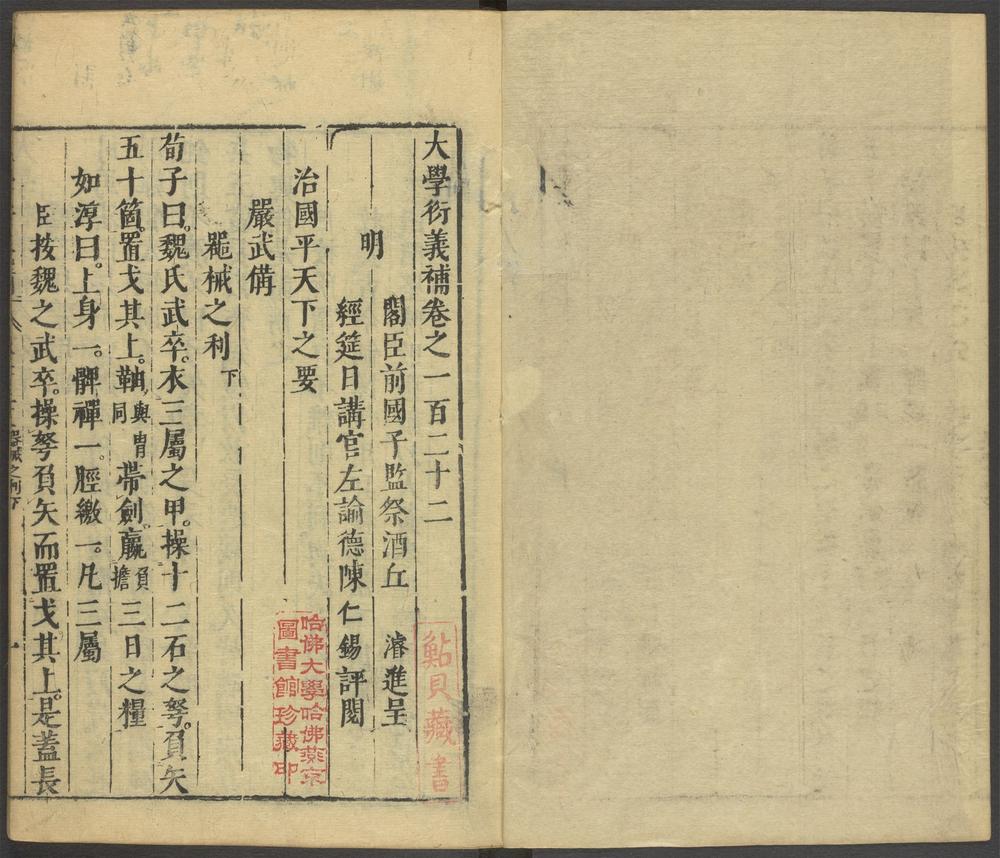 大學衍義補卷之一百二十二
明
閣臣前國子監祭酒丘 濬進呈
經筵日講官左諭德陳仁錫評閱
治國平天下之要
嚴武備
噐械之利下
荀子曰。魏氏武卒。衣三屬之甲。操十二石之弩。負矢
五十箇。置戈其上。鞧與冑同帶劍。贏負擔三日之糧
如淳曰。上身一。髀禪一。脛繳一。凡三屬
臣按魏之武卒。操弩負矢而置戈其上。是蓋長
器械之利下
鮎貝藏書
哈佛大學哈佛燕京
圖書館珍藏印